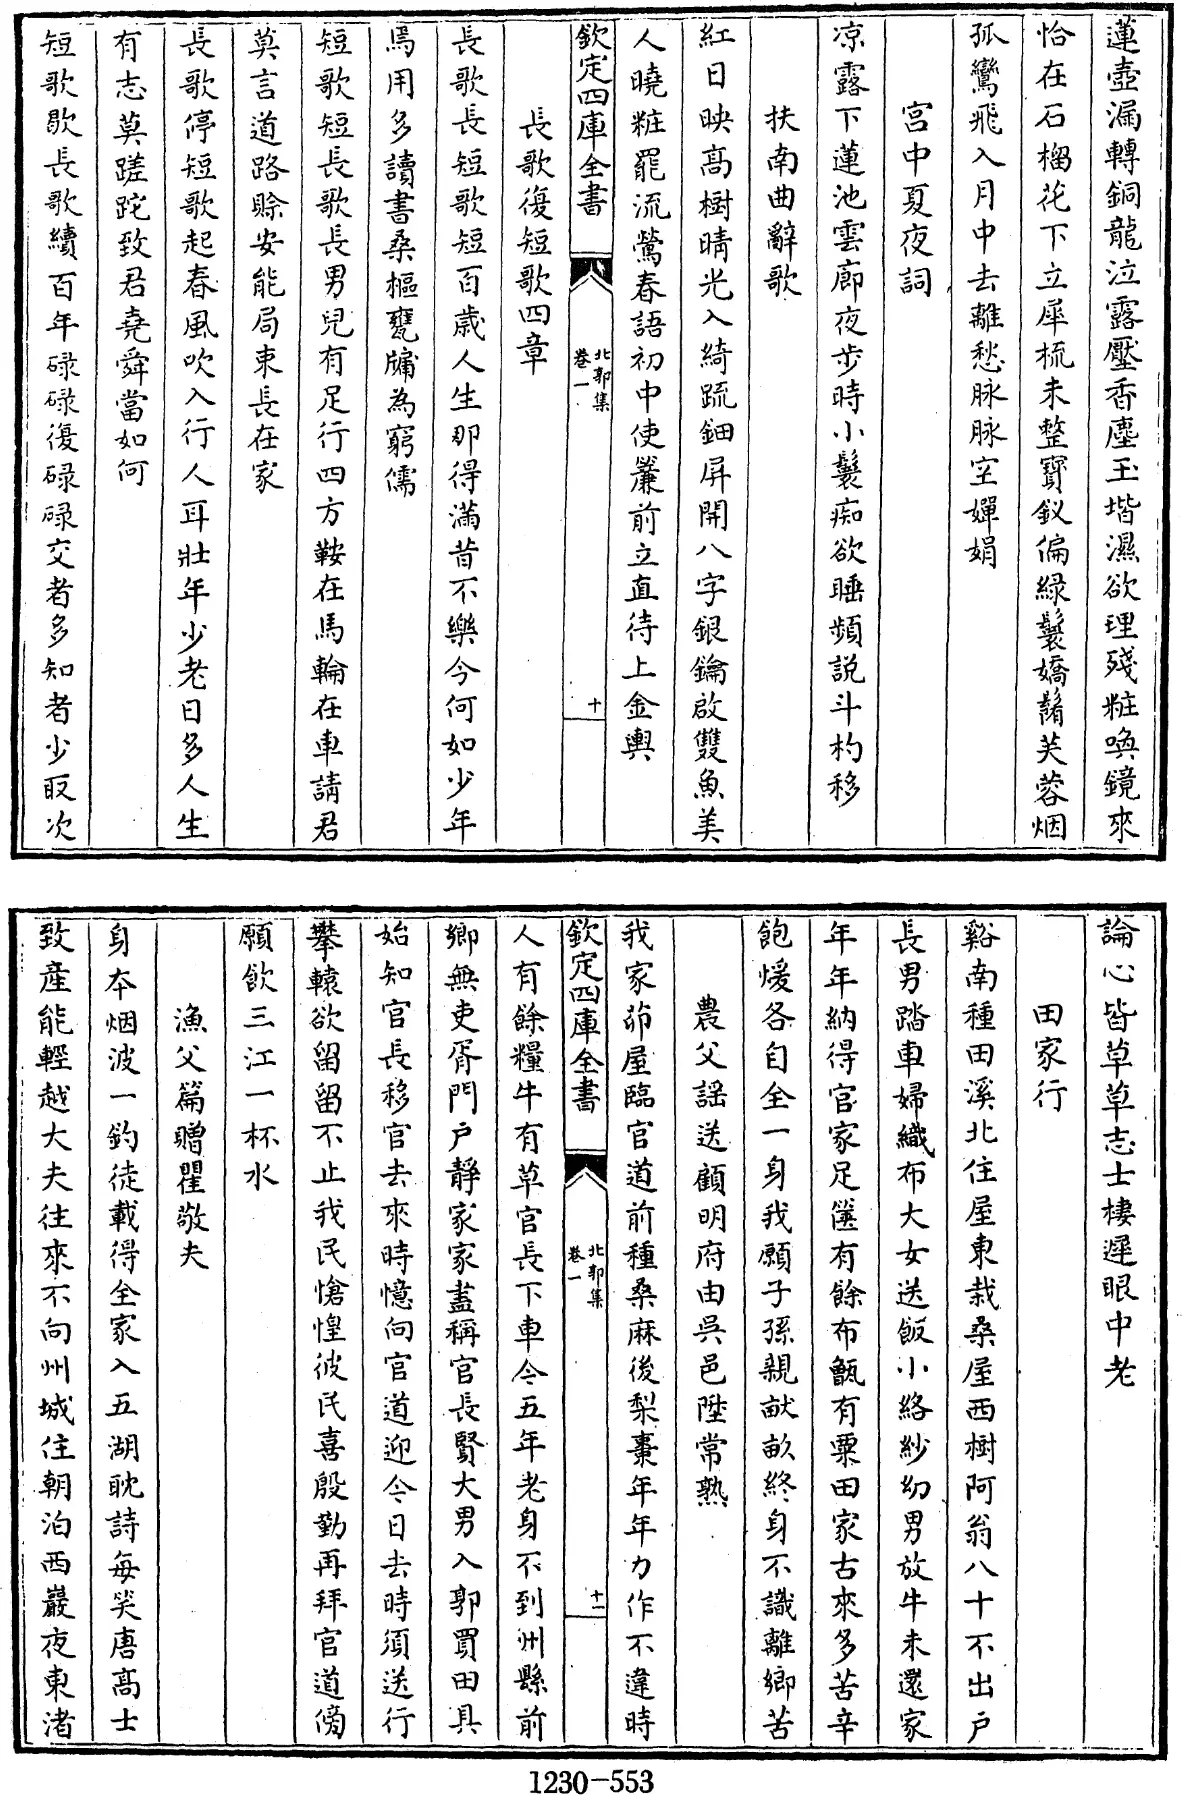 蓮壺漏轉銅龍泣露壓香塵玉堦濕欲理殘粧喚鏡來
恰在石榴花下立犀梳未整寶釵偏綠鬟嬌嚲芙蓉烟
孤鸞飛入月中去離愁脉脉空嬋娟
宮中夏夜詞
凉露下蓮池雲廊夜步時小鬟痴欲睡頻説斗杓移
扶南曲辭歌
紅日映髙樹晴光入綺疏鈿屏開八字銀鑰啟雙魚美
人曉粧罷流鶯春語初中使簾前立直待上金輿
欽定四庫全書
北郭集
卷一
十
長歌復短歌四章
長歌長短歌短百歲人生那得滿昔不樂今何如少年
焉用多讀書桑樞甕牖為窮儒
短歌短長歌長男兒有足行四方鞍在馬輪在車請君
莫言道路賒安能局束長在家
長歌停短歌起春風吹入行人耳壯年少老日多人生
有志莫蹉跎致君堯舜當如何
短歌歇長歌續百年碌碌復碌碌交者多知者少取次
論心皆草草志士棲遲眼中老
田家行
谿南種田溪北住屋東栽桑屋西樹阿翁八十不出戶
長男踏車婦織布大女送飯小絡紗幼男放牛未還家
年年納得官家足篋有餘布甔有粟田家古來多苦辛
飽煖各自全一身我願子孫親畎畝終身不識離鄉苦
農父謡送顧明府由吳邑陞常熟
我家茆屋臨官道前種桑麻後梨棗年年力作不違時
欽定四庫全書
北郭集
卷一
十一
人有餘糧牛有草官長下車今五年老身不到州縣前
鄉無吏胥門戶靜家家盡稱官長賢大男入郭買田具
始知官長移官去來時憶向官道迎今日去時須送行
攀轅欲留留不止我民愴惶彼民喜殷勤再拜官道傍
願飲三江一杯水
漁父篇贈瞿敬夫
身本烟波一釣徒載得全家入五湖耽詩每笑唐髙士
致産能輕越大夫往來不向州城住朝泊西巖夜東渚
1230-553